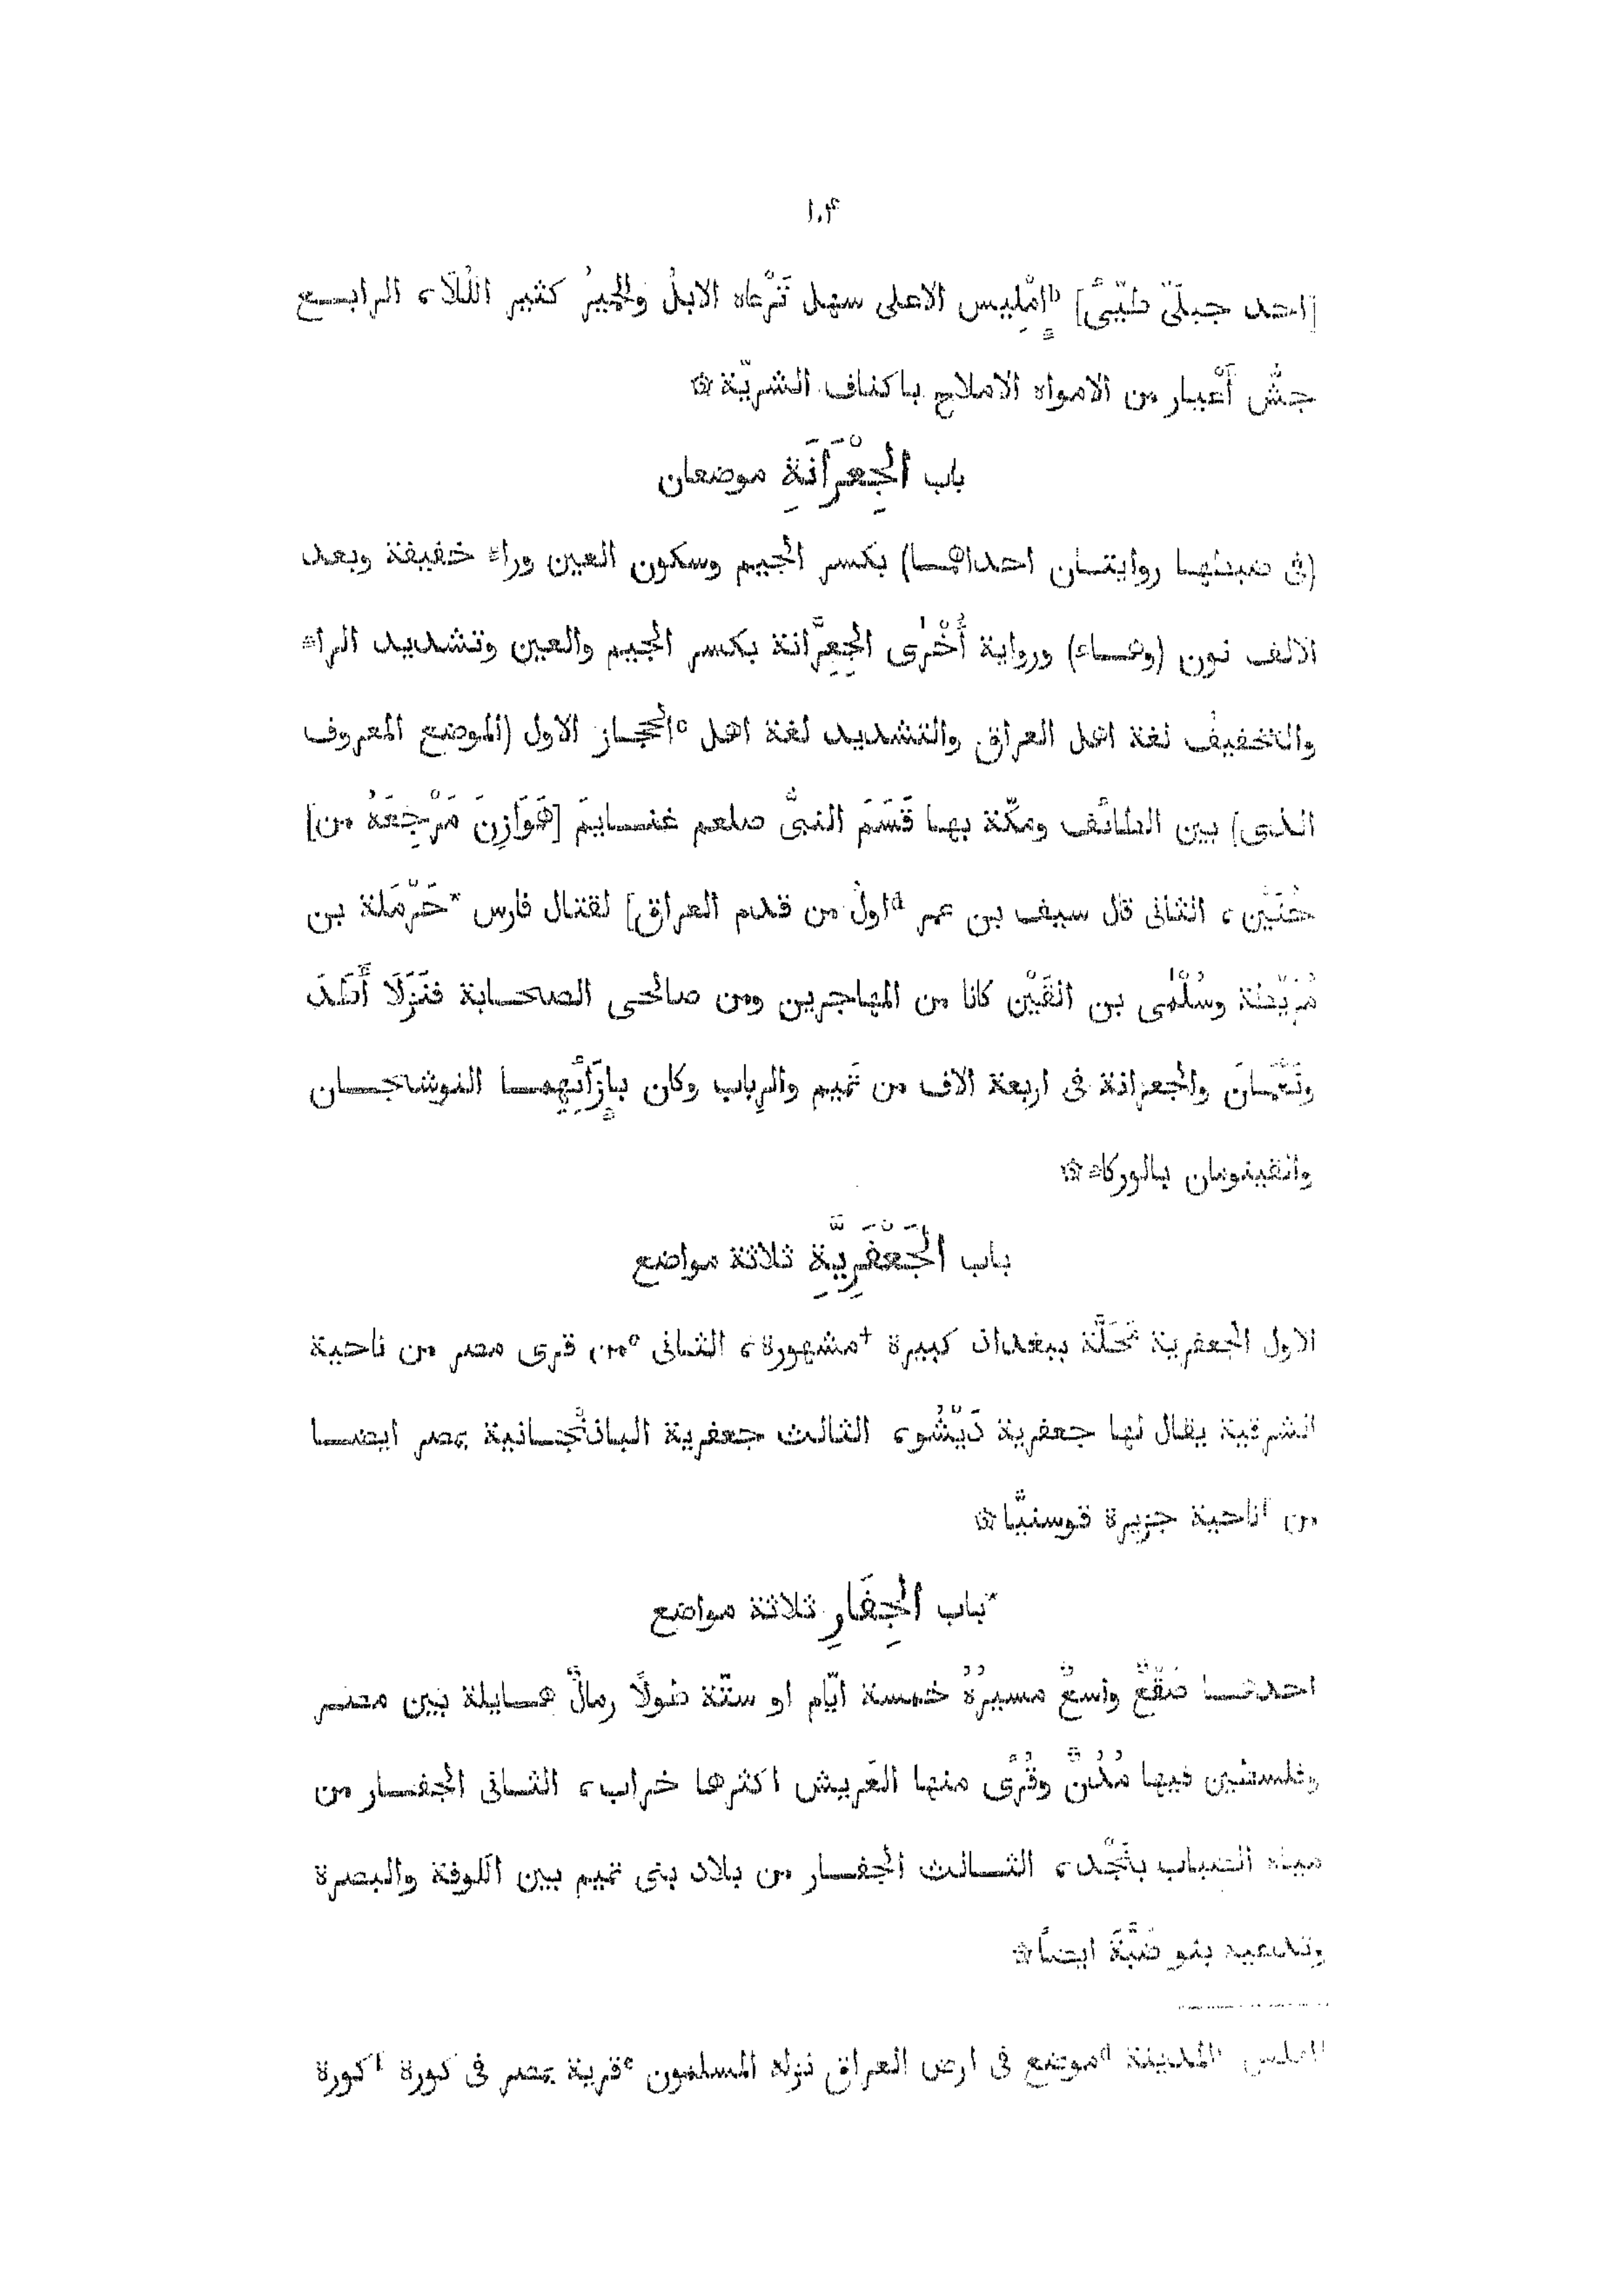 ١٠٤
[احد جبلَىْ طيّئ] bاِمْلِيس الاعلى سهل تَرْعاه الابلُ والحميرُ كثير الكلاء، الرابع
جشُّ أَعْيار من الامواه الاملاح باكناف الشربّة ۞
باب الجِعْرَانَةِ موضعان
(فى ضبطها روايتان احداهما) بكسر الجيم وسكون العين وراء خفيفة وبعد
الالف نون (وهاء) ورواية أُخْرٰى الجِعِرَّانة بكسر الجيم والعين وتشديد الراء
والتخفيف لغة اهل العراق والتشديد لغة اهل cالحجاز الاول (الموضع المعروف
الذى) بين الطائف ومكّة بها قَسَمَ النبىُّ صلعم غنايمَ [هَوَازِنَ مَرْجِعَهُ من]
حُنَيْن، الثانى قال سيف بن عمر dاولُ من قدم العراق] لقتال فارس *حَرْمَلة بن
مُرَيْطة وسُلْمٰى بن القَيْن كانا من المهاجرين ومن صالحى الصحابة فنَزَلَا أَطَدَ
ونَعْمَانَ والجعرانة فى اربعة الاف من تميم والرِباب وكان بِإِزَائِهِما النوشجان
والفينومان بالوركاء ۞
باب الجَعْفَرِيَّةِ ثلاثة مواضع
الاول الجعفرية مَحَلَّة ببغداد كبيرة †مشهورة، الثانى eمن قرى مصر من ناحية
الشرقية يقال لها جعفرية دَبْشُو، الثالث جعفرية الباذنْجانية بمصر ايضا
من fناحية جزيرة قوسنيَّا ۞
*باب الجِفَارِ ثلاثة مواضع
احدها صُقْعٌ واسعٌ مسيرُهُ خمسة ايّام او ستّة طولًا رمالٌ هايلة بين مصر
وفلسطين فيها مُدُنٌ وقُرًى منها العَريش اكثرها خراب، الثانى الجفار من
مياه الضباب بنَجْد، الثالث الجفار من بلاد بنى تميم بين الكوفة والبصرة
وتدعيه بنو ضَبَّةَ ايضًا ۞
املس المدينة dموضع فى ارض العراق نزله المسلمون eقرية بمصر فى كورة fكورة